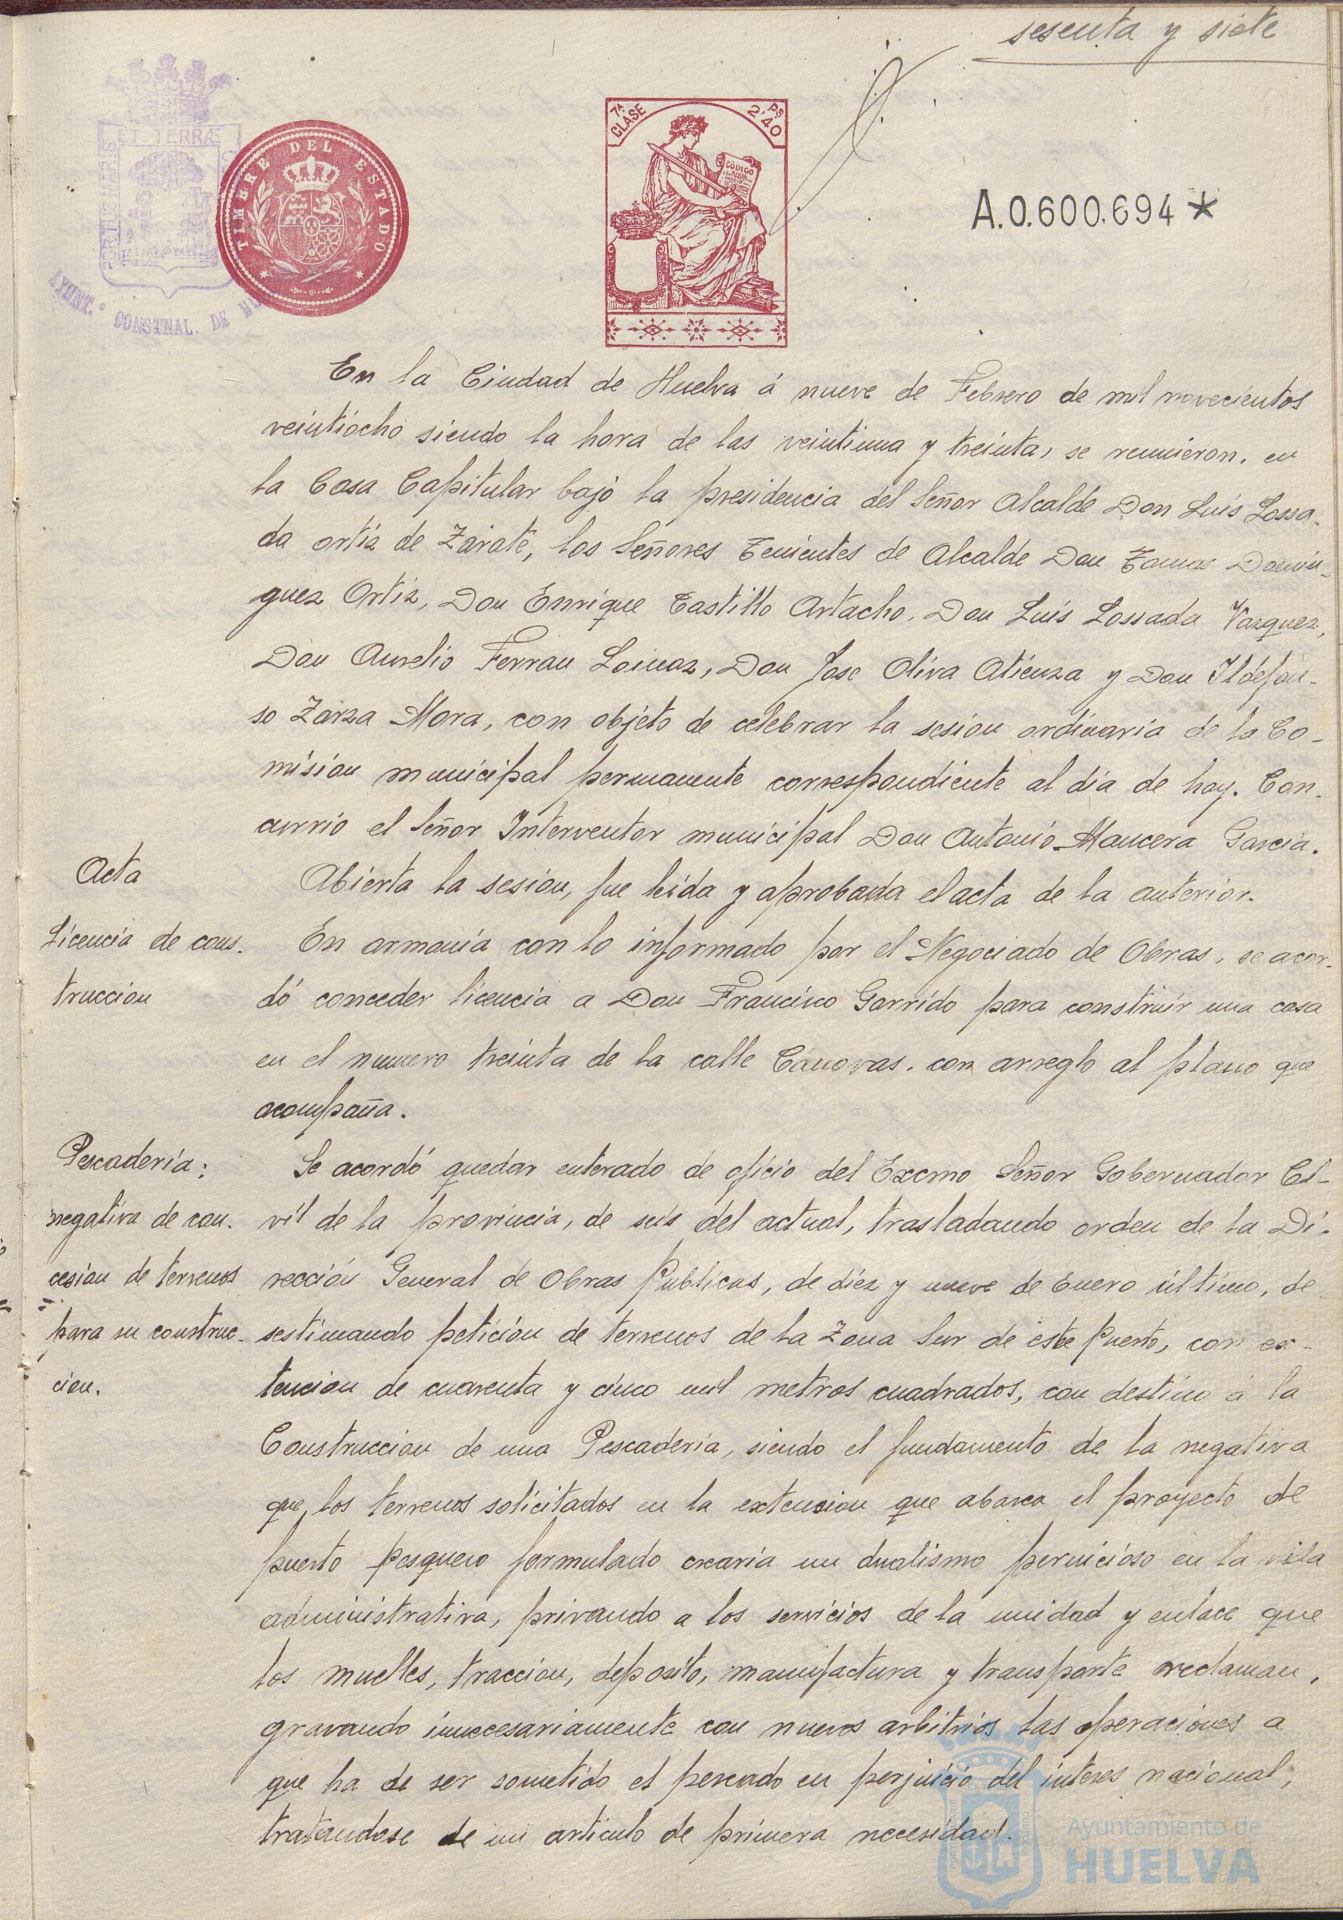 sesenta y siete
ET TERRÆ
AYUNT.º CONSTNAL. DE
TIMBRE DEL ESTADO
7ª CLASE
2'40 PS
CÓDIGO
A.0.600.694*
En la Ciudad de Huelva á nueve de Febrero de mil novecientos
veintiocho siendo la hora de las veintiuna y treinta, se reunieron, en
la Casa Capitular bajo la presidencia del Señor Alcalde Don Luis Lossa-
da ortiz de Zarate, los Señores Tenientes de Alcalde Don Tomas Domin-
guez Ortiz, Don Enrique Castillo Artacho, Don Luis Lossada Vazquez,
Don Aurelio Ferran Loinaz, Don Jose Oliva Atienza y Don Ildefon-
so Zarza Mora, con objeto de celebrar la sesion ordinaria de la Co-
mision municipal permanente correspondiente al dia de hoy. Con-
currio el Señor Interventor municipal Don Antonio Mancera Garcia.
Acta
Abierta la sesion, fue leida y aprobada el acta de la anterior.
Licencia de cons-
truccion
En armonia con lo informado por el Negociado de Obras, se acor-
dó conceder licencia a Don Francisco Garrido para construir una casa
en el numero treinta de la calle Cánovas, con arreglo al plano que
acompaña.
Pescaderia:
negativa de con-
cesion de terrenos
para su construc-
cion.
Se acordó quedar enterado de oficio del Excmo Señor Gobernador Ci-
vil de la provincia, de seis del actual, trasladando orden de la Di-
rección General de Obras Publicas, de diez y nueve de Enero último, de-
sestimando petición de terrenos de la Zona Sur de este Puerto, con ex-
tencion de cuarenta y cinco mil metros cuadrados, con destino á la
Construccion de una Pescaderia, siendo el fundamento de la negativa
que, los terrenos solicitados en la extencion que abarca el proyecto de
puerto pesquero formulado crearia un dualismo pernicioso en la vida
administrativa, privando a los servicios de la unidad y enlace que
los muelles, traccion, deposito, manufactura y transporte reclaman,
gravando innecesariamente con nuevos arbitrios las operaciones a
que ha de ser sometido el pescado en perjuicio del interes nacional,
tratandose de un articulo de primera necesidad.
Ayuntamiento de
HUELVA